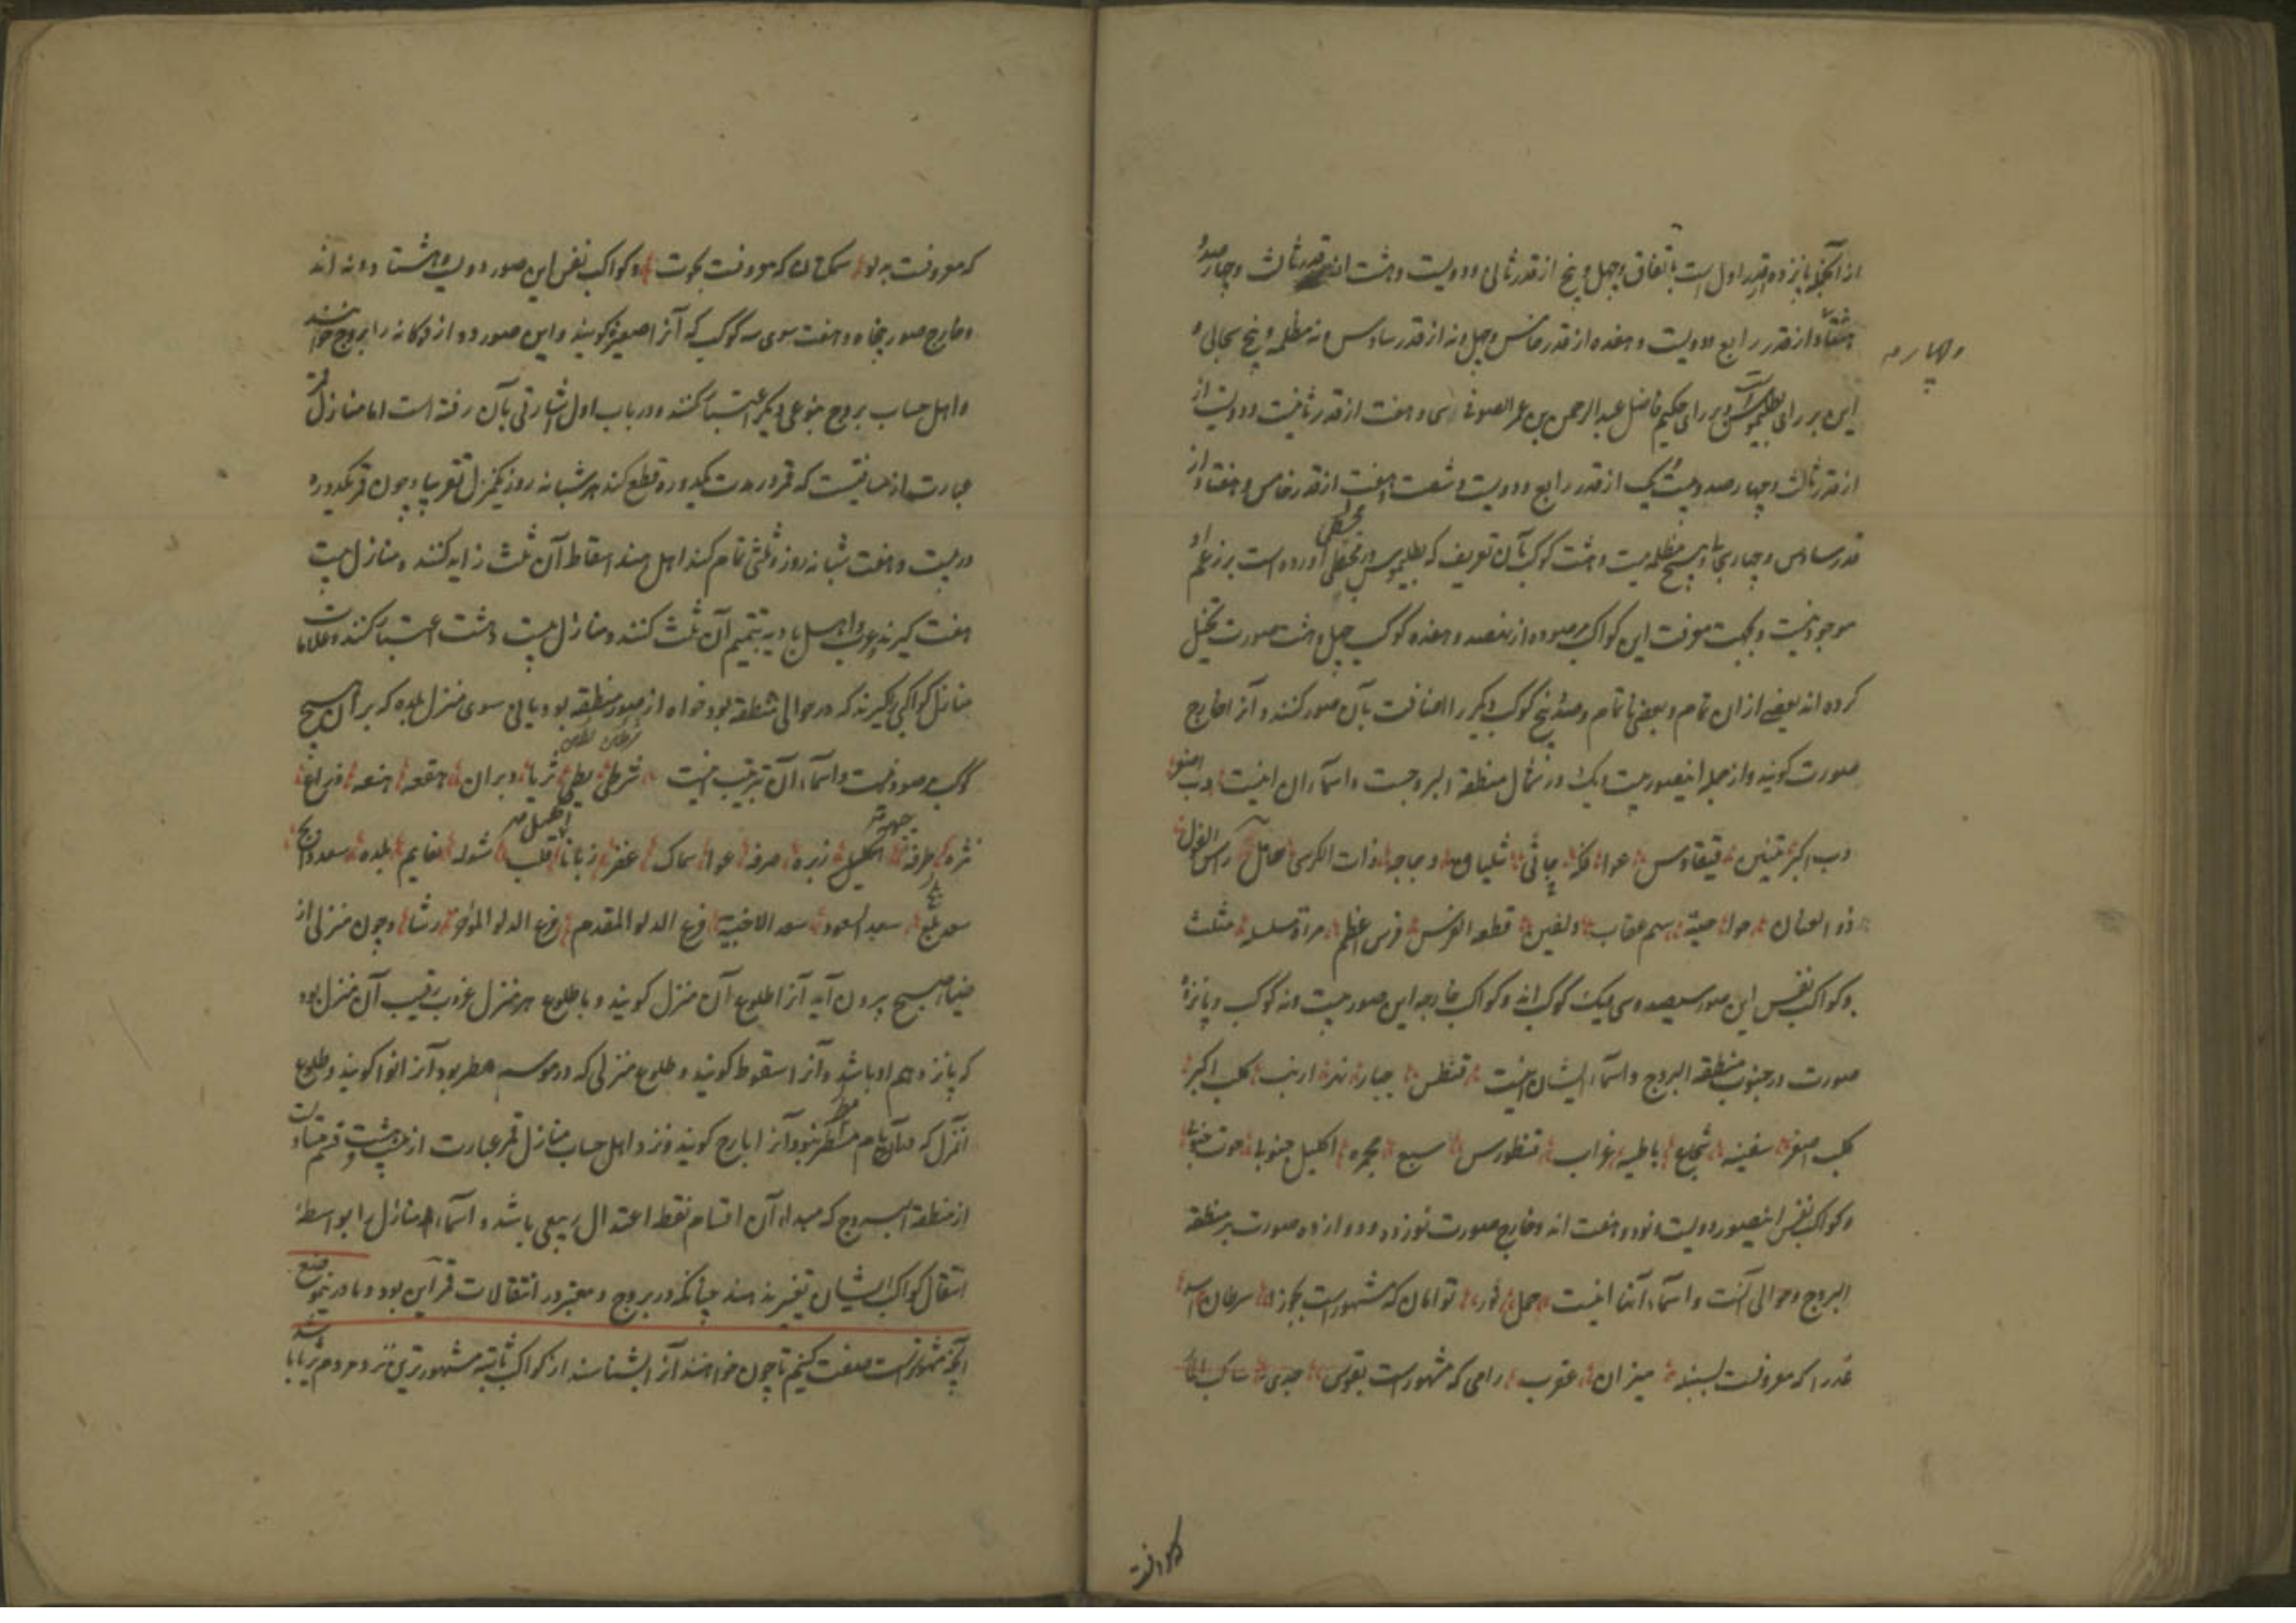 از آنجمله پانزده از قدر اول است باتفاق و چهل و پنج از قدر ثانی و دویست و هشت از قدر ثالث و چهارصد و
هفتاد از قدر رابع و دویست و هفده از قدر خامس و چهل و نه از قدر سادس نه مظلمه و پنج سحابی و
و چهارم
این بر رای بطلمیوس است و بر رای حکیم فاضل عبدالرحمن بن عمر الصوفی سی و هفت از قدر ثانیست و دویست از
از قدر ثالث و چهارصد و بیست یک از قدر رابع و دویست و شصت هفت از قدر خامس و هفتاد از
قدر سادس و چهار سحابی و هیچ مظلمه نیست و هشت کوکب بآن تعریف که بطلیموس در مجسطی آورده است بر زعم او
موجود نیست و بجهت معرفت این کواکب مرصوده از نهصد و هفده کوکب چهل و هشت صورت تخیل
کرده اند بعضی ازان تمام و بعضی ناتمام و صد و پنج کوکب دیگر را اضافت بآن صور کنند و آنرا خارج
صورت گویند و از جمله اینصور بیست و یک در شمال منطقة البروجست و اسماء آن اینست دب اصغر
دب اکبر تنین قیقاوس عوا فکه جاثی شلیاق دجاجه ذات الکرسی حامل راس الغول
ذو العنان حوا حیة سهم عقاب دلفین قطعه الفرس فرس اعظم مراة مسلسله مثلث
و کواکب نفس این صور سیصد و سی و یک کوکب اند و کواکب خارجه این صور بیست و نه کوکب و پانزده
صورت در جنوب منطقه البروج و اسماء ایشان اینست قیطس جبار نهر ارنب کلب اکبر
کلب اصغر سفینه شجاع باطیه غراب قنطورس سبع مجمره اکلیل جنوبی حوت جنوبی
و کواکب نفس اینصور دویست و نود و هفت اند و خارج صورت نوزده و دوازده صورت بر منطقه
البروج و حوالی آنست و اسماء آنها اینست حمل ثور توامان که مشهور است بجوزا سرطان اسد
عذرا که معروفست بسنبله میزان عقرب رامی که مشهور است بقوس جدی ساکب الماء
که معروفست به دلو سمکتان که معروفست بحوت و کواکب نفس این صور دویست و هشتاد و نه اند
و خارج صور پنجاه و هفت سوی سه کوکب که آنرا صغیره گویند و این صور دوازده گانه را بروج خوانند
و اهل حساب بروج بنوعی دیگر اعتبار کنند و در باب اول اشارتی بآن رفته است اما منازل قمر
عبارت از مسافتیست که قمر در مدت یکدوره قطع کند هر شبانه روز یکمنزل تقریبا و چون قمر یکدوره
در بیست و هفت شبانه روز و ثلثی تمام کند اهل هند اسقاط آن ثلث زاید کنند و منازل بیست
هفت گیرند و عرب و اهل بادیه تتمیم آن ثلث کنند و منازل بیست و هشت اعتبار کنند و علامات
منازل کواکبی گیرند که در حوالی منطقه بود خواه از صور منطقه بود یا نی سوی منزل بلده که بر آن هیچ
کوکب مرصود نیست و اسماء آن بترتیب اینست شرطی بطین ثریا دبران هقعه هنعه ذراع
شرطین بطین
نثره طرفه جبهه زبره صرفه عوا سماک غفر زبانا اکلیل قلب شوله نعایم بلده سعد ذابح
سعد بلع سعد السعود سعد الاخبیه فرغ الدلو المقدم فرغ الدلو المؤخر رشا و چون منزلی از
ضیا صبح بیرون آید آنرا طلوع آن منزل گویند و با طلوع هر منزل غروب رقیب آن منزل بود
که پانزدهم او باشد و آنرا سقوط گویند و طلوع منزلی که در موسم مطر بود آنرا انوا گویند و طلوع
منزل که در آن ایام مطر نبود آنرا بارح گویند و نزد اهل حساب منازل قمر عبارت از بیست و هشت قسم متساوی است
از منطقة البروج که مبداء آن اقسام نقطه اعتدال ربیعی باشد و اسماء منازل را بواسطه
انتقال کواکب ایشان تغییر ندهند چنانکه در بروج و معتبر در انتقالات قمر این بود و ما درینموضع
آنچه مشهورتر است صفت کنیم تا چون خواهند آنرا بشناسند از کواکب ثابته مشهورترین نزد مردم ثریا باشد
که معروفست